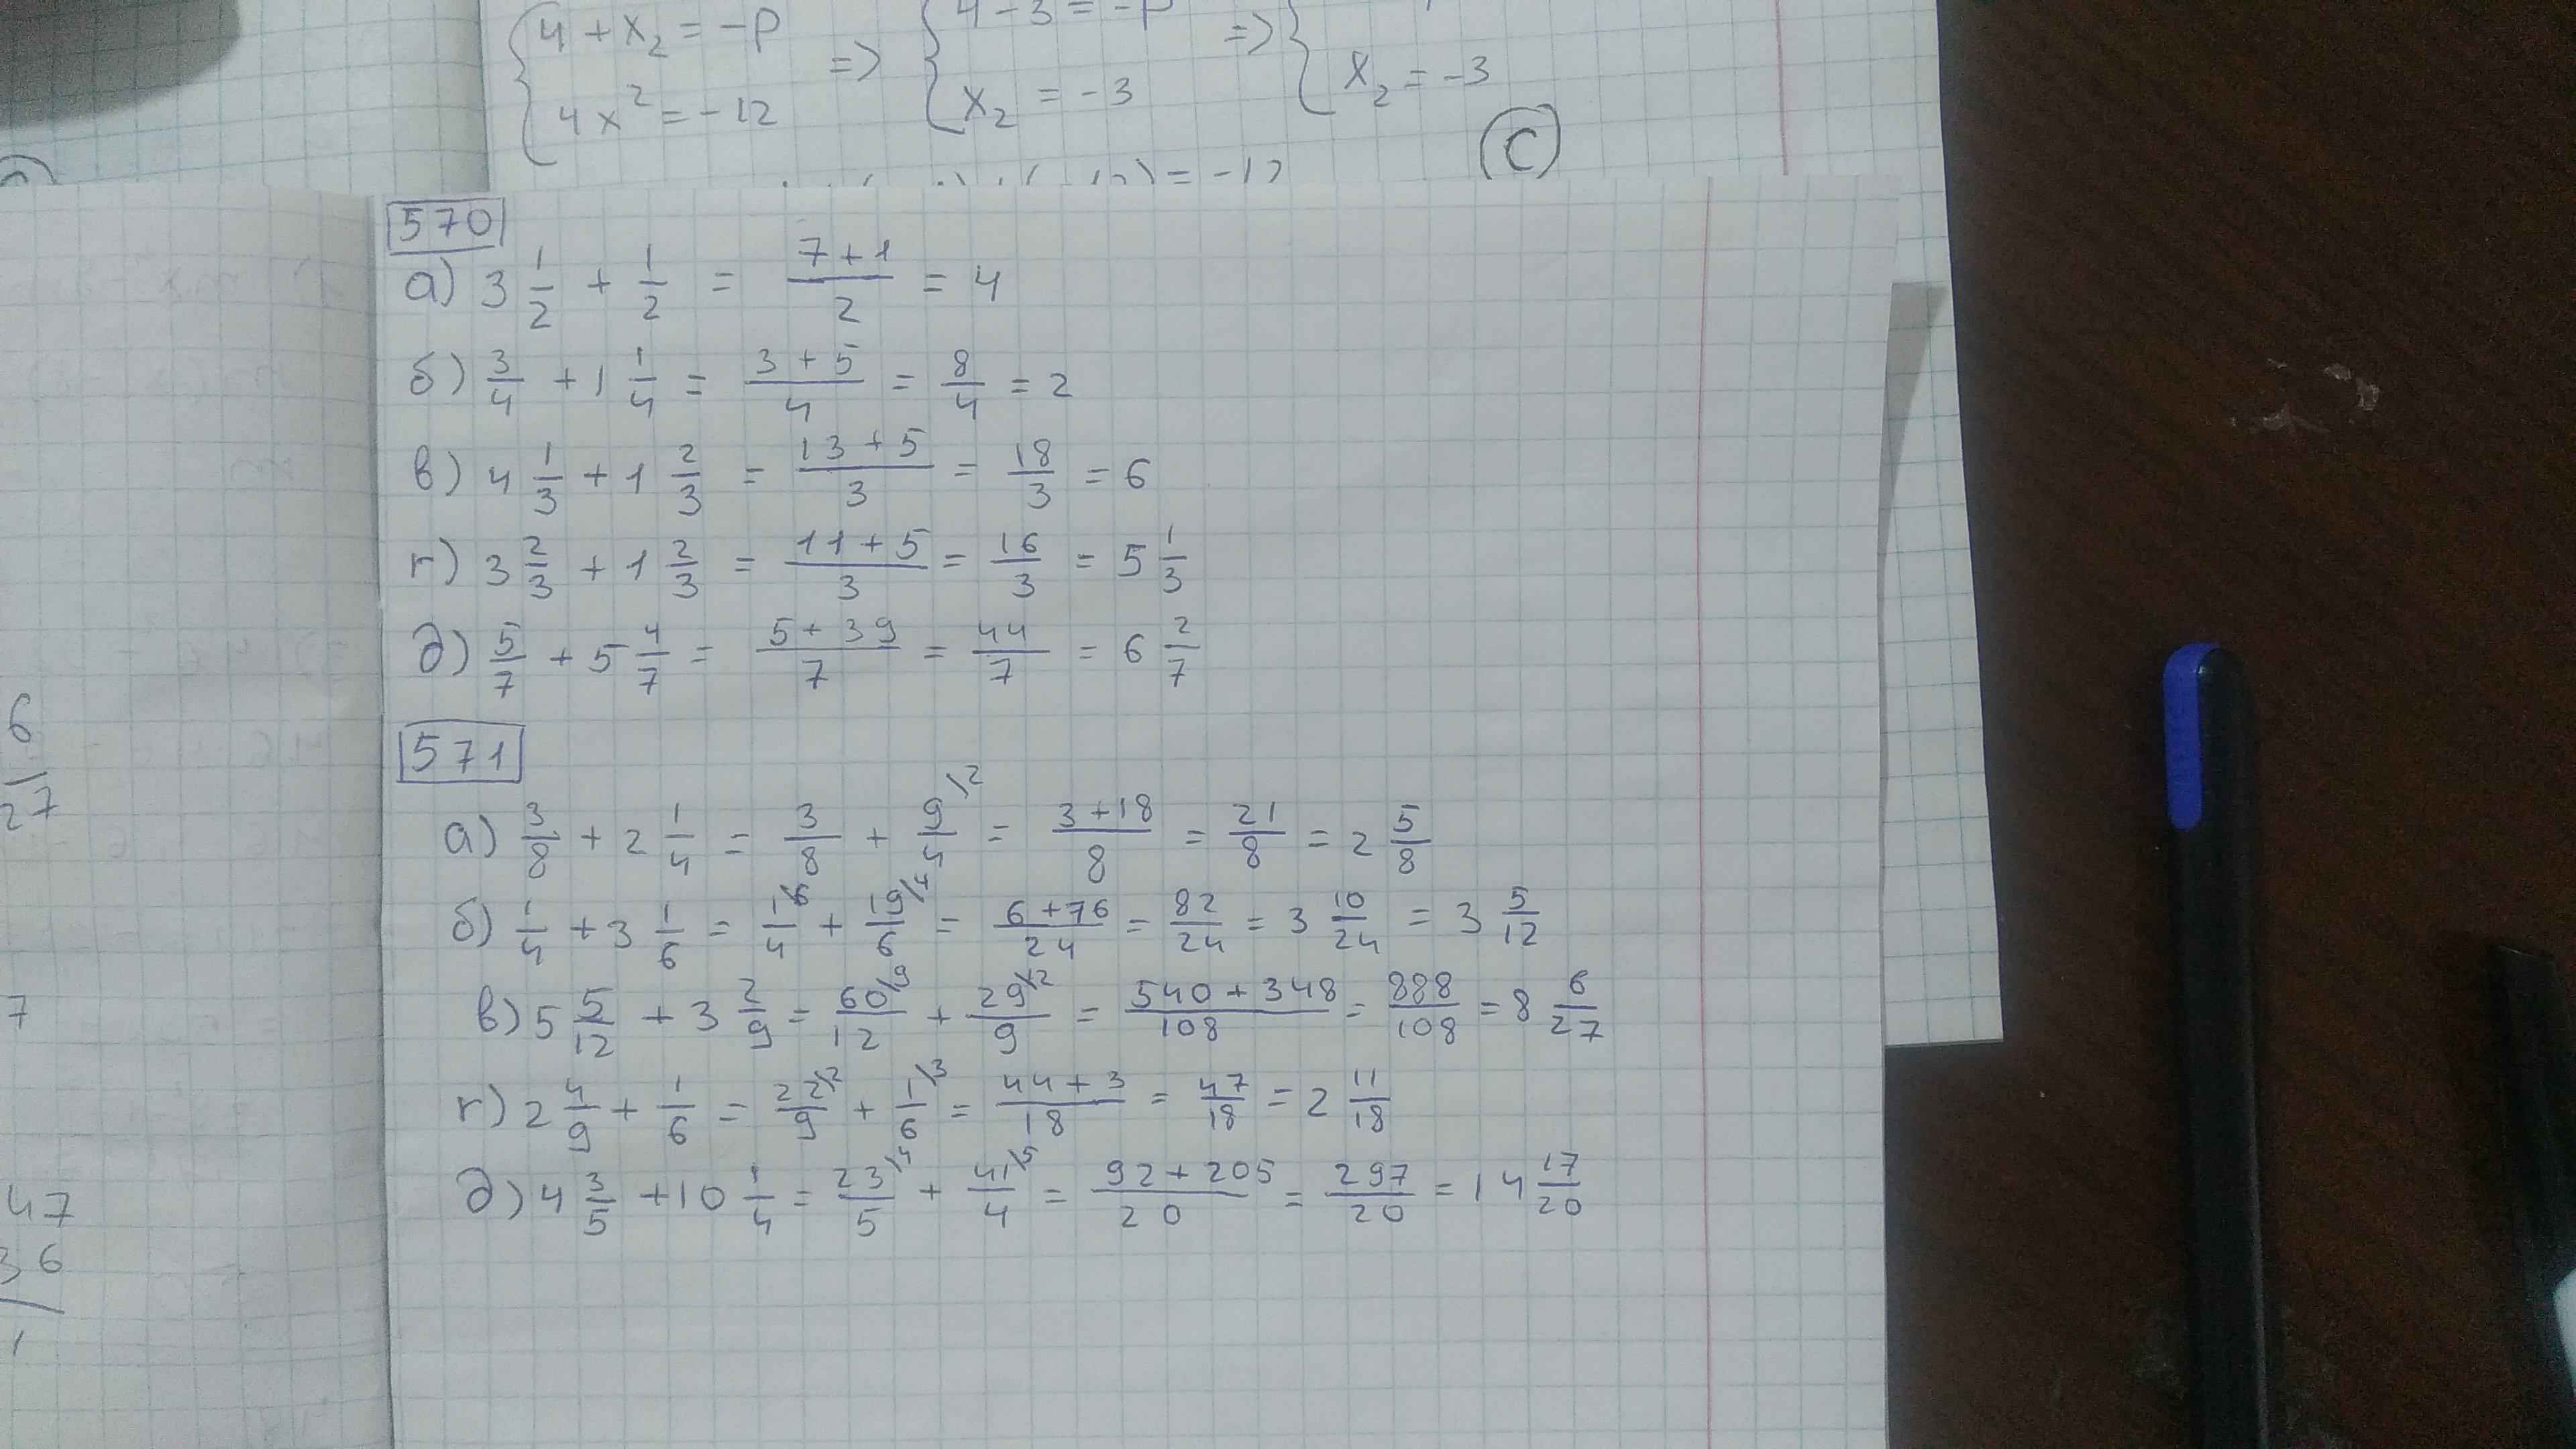 { 4 + x₂ = -p
4x² = -12 => { 4 - 3 = -p
x₂ = -3 => { x₂ = -3
(C)
570
а) 3 1/2 + 1/2 = (7+1)/2 = 4
б) 3/4 + 1 1/4 = (3+5)/4 = 8/4 = 2
в) 4 1/3 + 1 2/3 = (13+5)/3 = 18/3 = 6
г) 3 2/3 + 1 2/3 = (11+5)/3 = 16/3 = 5 1/3
д) 5/7 + 5 4/7 = (5+39)/7 = 44/7 = 6 2/7
571
а) 3/8 + 2 1/4 = 3/8 + 9/4 \2 = (3+18)/8 = 21/8 = 2 5/8
б) 1/4 + 3 1/6 = 1/4 \6 + 19/6 \4 = (6+76)/24 = 82/24 = 3 10/24 = 3 5/12
в) 5 5/12 + 3 2/9 = 60/12 \9 + 29/9 \12 = (540+348)/108 = 888/108 = 8 6/27
г) 2 4/9 + 1/6 = 22/9 \2 + 1/6 \3 = (44+3)/18 = 47/18 = 2 11/18
д) 4 3/5 + 10 1/4 = 23/5 \4 + 41/4 \5 = (92+205)/20 = 297/20 = 14 17/20
6/27
7
47
36
1